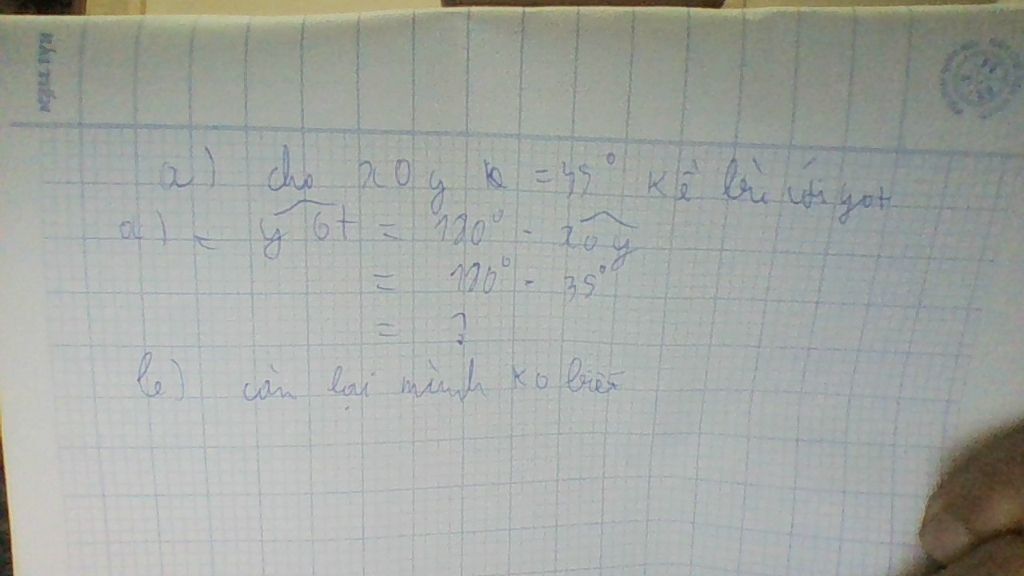 a) cho xOy = 35° kề bù với yot
a) yOt = 180° - xoy
= 180° - 35°
= ?
b) còn lại mình ko biết